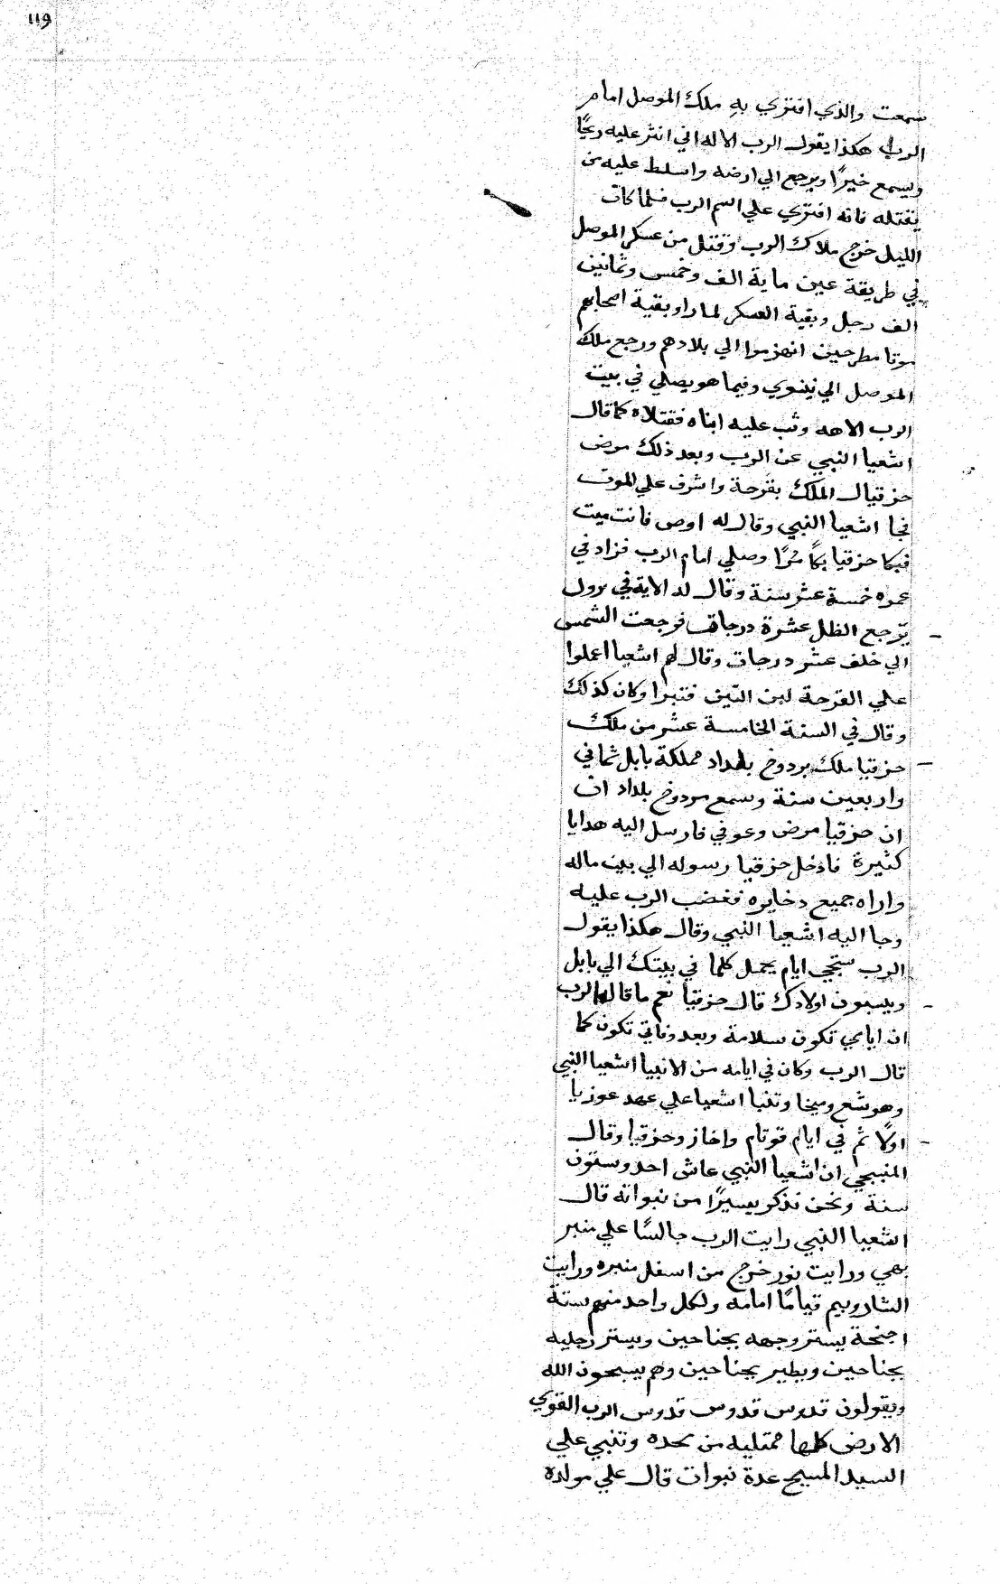 119
سمعت والذي افتري به ملك الموصل امام
الرب هكذا يقول الرب الاله اني انثر عليه ريحًا
ويسمع خبرًا ويرجع الي ارضه واسلط عليه من
يقتله فانه افتري علي اسم الرب فلما كان
الليل خرج ملاك الرب وقتل من عسكر الموصل
في طريقة عين ماية الف وخمس وثمانين
الف رجل وبقية العسكر لما راو بقية اصحابهم
موتا مطرحين انهزموا الي بلادهم ورجع ملك
الموصل الي نينوي وفيما هو يصلي في بيت
الرب الاهه وثب عليه ابناه فقتلاه كما قال
اشعيا النبي عن الرب وبعد ذلك مرض
حزقيال الملك بقرحة واشرف علي الموت
فجا اشعيا النبي وقال له اوص فانت ميت
فبكا حزقيا بكًا مُرًا وصلي امام الرب فزاد في
عمره خمسة عشر سنة وقال له الاية في نزول
يرجع الظل عشرة درجات فرجعت الشمس
الي خلف عشر درجات وقال لهم اشعيا اعملوا
علي القرحة لبن التين فتبرا وكان كذلك
وقال في السنة الخامسة عشر من ملك
حزقيا ملك بردوخ بلداد مملكة بابل ثماني
واربعين سنة وسمع مردوخ بلداد ان
ان حزقيا مرض وعوفي فارسل اليه هدايا
كثيرة فادخل حزقيا رسوله الي بيت ماله
واراه جميع دخايره فغضب الرب عليه
وجا اليه اشعيا النبي وقال هكذا يقول
الرب ستجي ايام يحمل كلما في بيتك الي بابل
ويسبون اولادك قال حزقيا نعم ما قاله الرب
ان ايامي تكون سلامة وبعد وفاتي تكون كما
قال الرب وكان في ايامه من الانبيا اشعيا النبي
وهوشع وميخا وتنبا اشعيا علي عهد عوزيا
اولًا ثم في ايام قوتام واخاز وحزقيا وقال
المنبجي ان اشعيا النبي عاش احد وستون
سنة ونحن نذكر يسيرًا من نبواته قال
اشعيا النبي رايت الرب جالسًا علي منبر
بهي ورايت نور خرج من اسفل منبره ورايت
الشاروبيم قيامًا امامه ولكل واحد منهم ستة
اجنحة يستر وجهه بجناحين ويستر رجليه
بجناحين ويطير بجناحين وهم يسبحون الله
ويقولون قدوس قدوس قدوس الرب القوي
الارض كلها ممتليه من مجده وتنبي علي
السيد المسيح عدة نبوات قال علي مولده